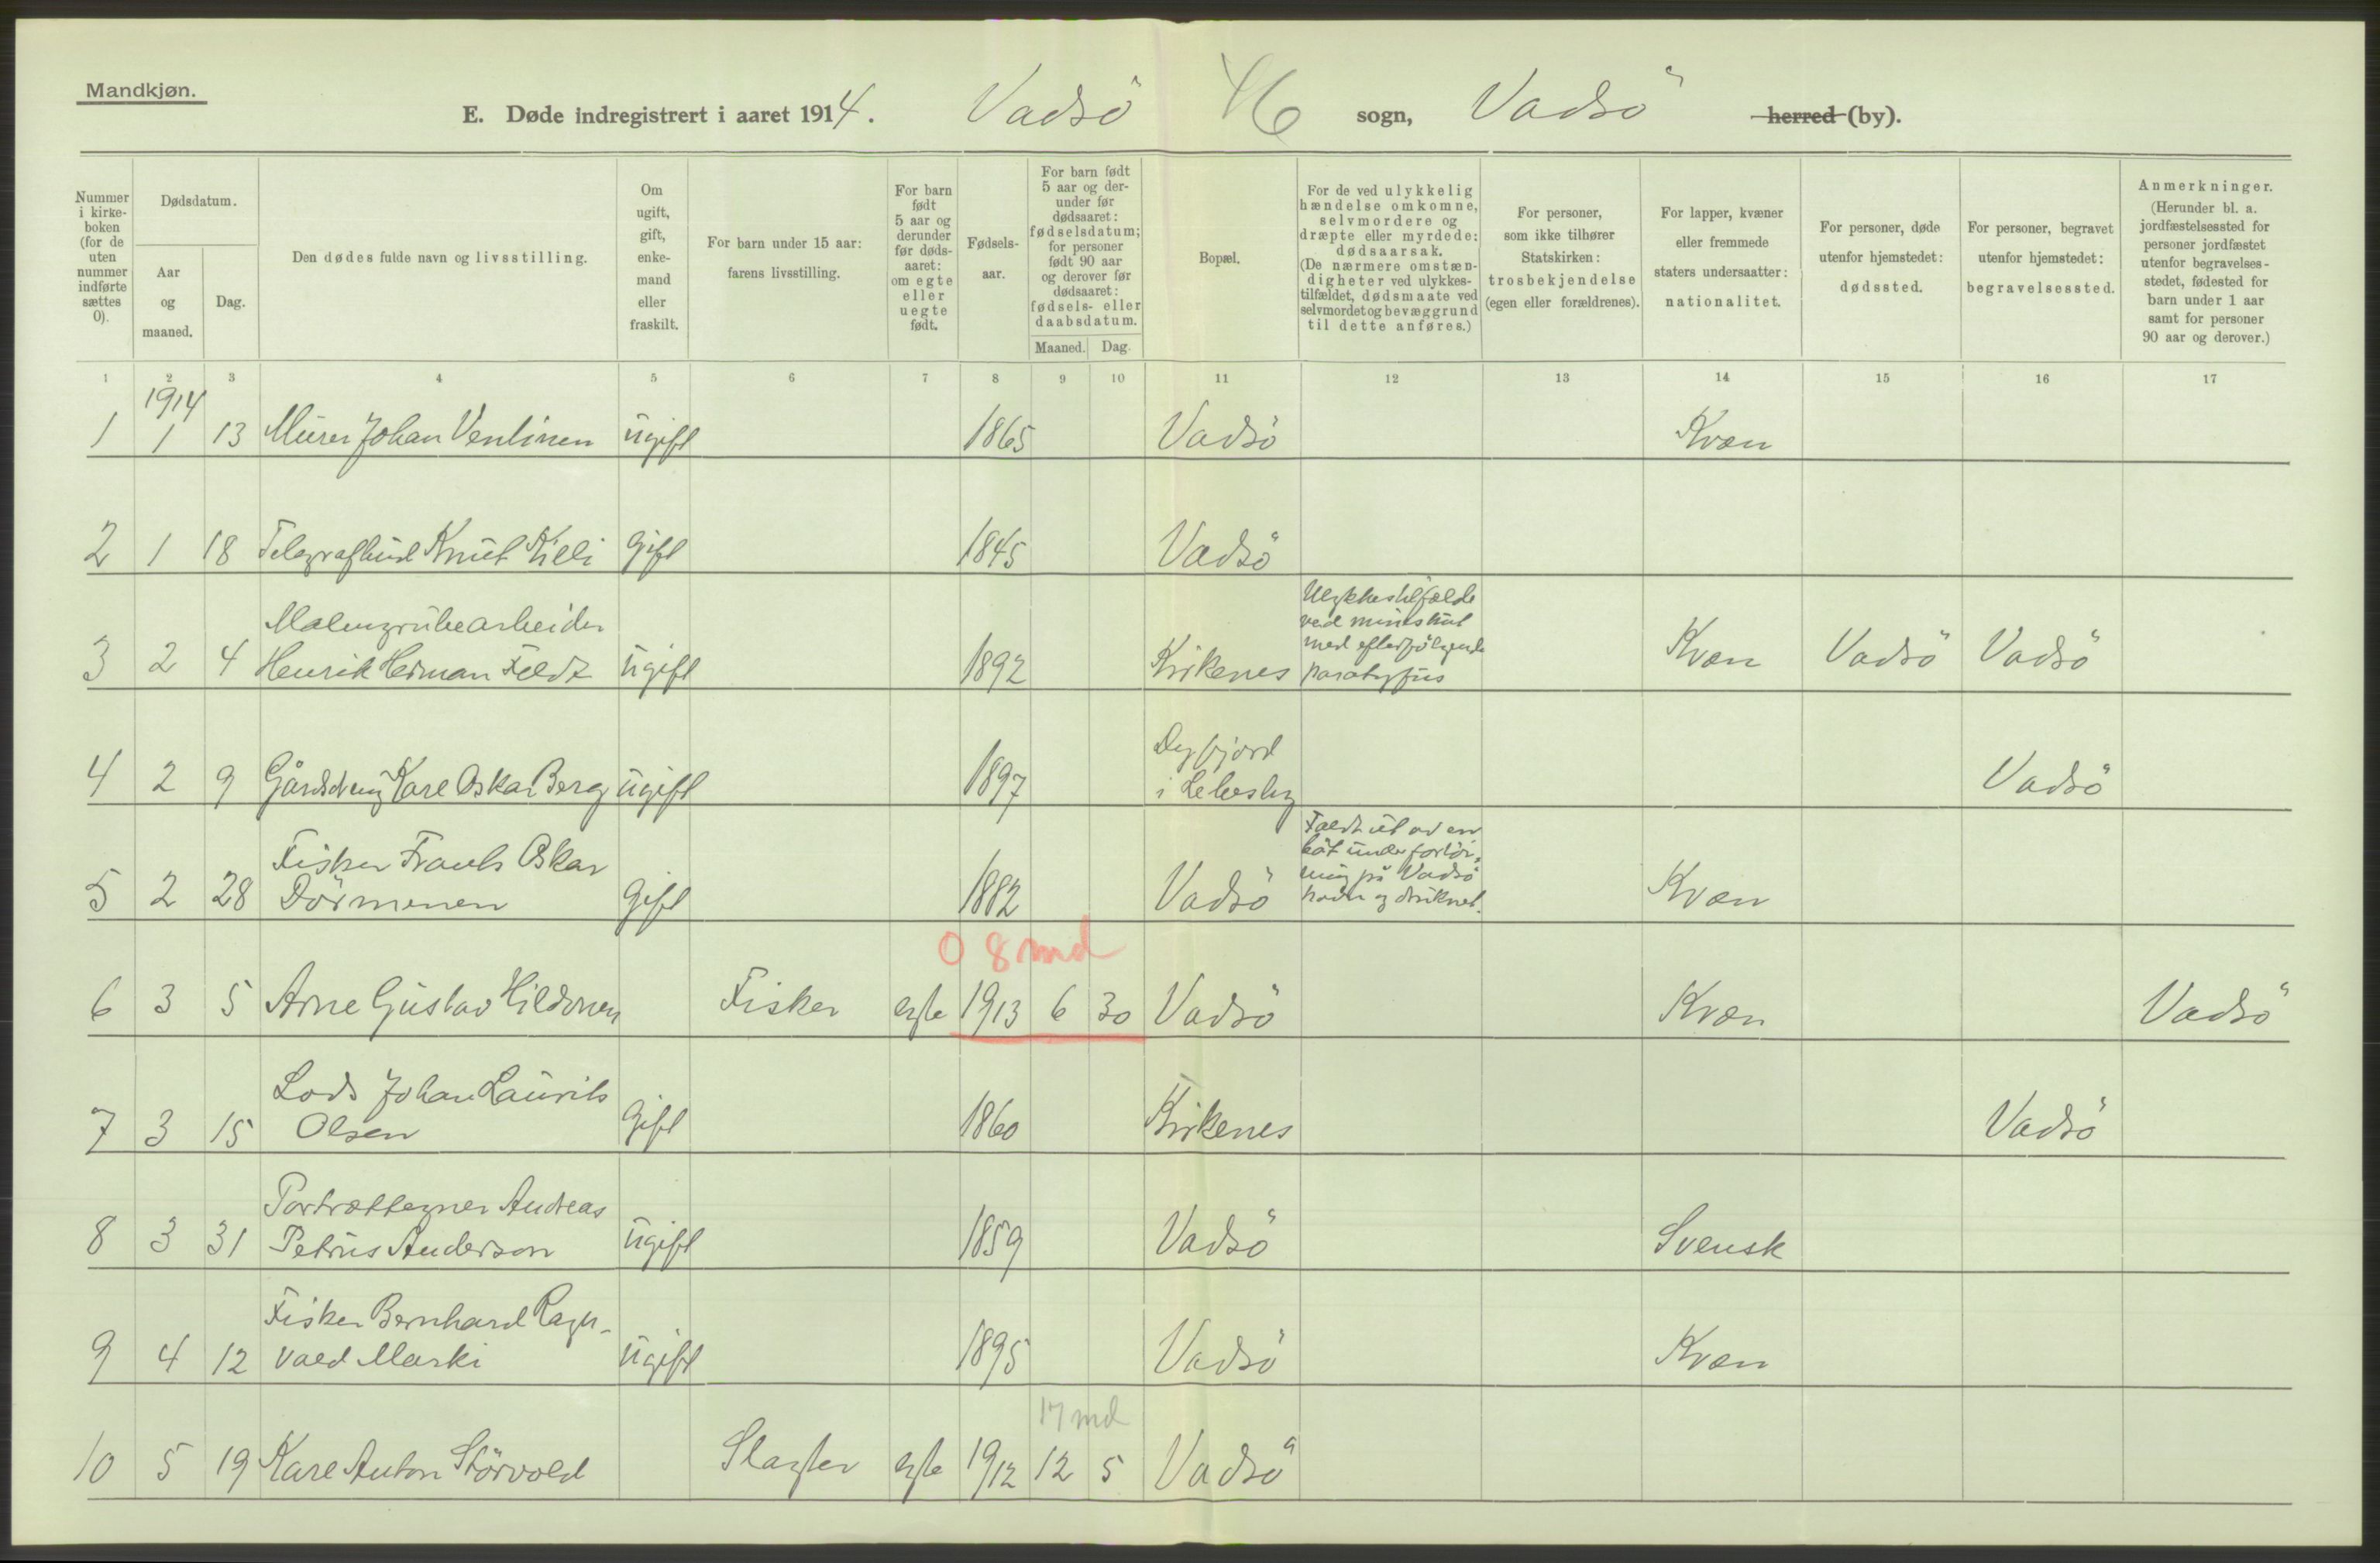 Mandkjøn.
E. Døde indregistrert i aaret 1914. Vadsö 46 sogn, Vadsö herred (by).
Nummer i kirke-boken (for de uten nummer indførte sættes 0).
Dødsdatum.
Aar og maaned.
Dag.
Den dødes fulde navn og livsstilling.
Om ugift, gift, enke-mand eller fraskilt.
For barn under 15 aar: farens livsstilling.
For barn født 5 aar og derunder før døds-aaret: om egte eller uegte født.
Fødsels-aar.
For barn født 5 aar og der-under før dødsaaret: fødselsdatum; for personer født 90 aar og derover før dødsaaret: fødsels- eller daabsdatum.
Maaned. Dag.
Bopæl.
For de ved ulykkelig hændelse omkomne, selvmordere og dræpte eller myrdede: dødsaarsak. (De nærmere omstæn-digheter ved ulykkes-tilfældet, dødsmaate ved selvmordet og bevæggrund til dette anføres.)
For personer, som ikke tilhører Statskirken: trosbekjendelse (egen eller forældrenes).
For lapper, kvæner eller fremmede staters undersaatter: nationalitet.
For personer, døde utenfor hjemstedet: dødssted.
For personer, begravet utenfor hjemstedet: begravelsessted.
Anmerkninger. (Herunder bl. a. jordfæstelsessted for personer jordfæstet utenfor begravelses-stedet, fødested for barn under 1 aar samt for personer 90 aar og derover.)
1 2 3 4 5 6 7 8 9 10 11 12 13 14 15 16 17
1914
1 1 13 Murer Johan Venlinen ugift 1865 Vadsö Kvæn
2 1 18 Knut Killi Gift 1845 Vadsö
Ulykkestilfælde
ved mineskud
med efterfölgende
Malmgrubearbeider
3 2 4 Henrik Herman Feldt ugift 1892 Kirkenes paratyfus Kvæn Vadsö Vadsö
Dyfjord
4 2 9 Gårdsdreng Karl Oskar Berg ugift 1897 i Lebesby Vadsö
Faldt ut av en
båt under fortöi-
ning på Vadsö
Fisker Frants Oskar
5 2 28 Dörmenen Gift 1882 Vadsö havn og druknet. Kvæn
0 8 md
6 3 5 Arne Gustav Hildonen Fisker egte 1913 6 30 Vadsö Kvæn Vadsö
Lods Johan Laurits
7 3 15 Olsen Gift 1860 Kirkenes Vadsö
Portrættegner Andreas
8 3 31 Petrus Anderson ugift 1859 Vadsö Svensk
Fisker Bernhard Ragn-
9 4 12 vald Marki ugift 1895 Vadsö Kvæn
17 md
10 5 19 Karl Anton Störvold Slagter egte 1912 12 5 Vadsö